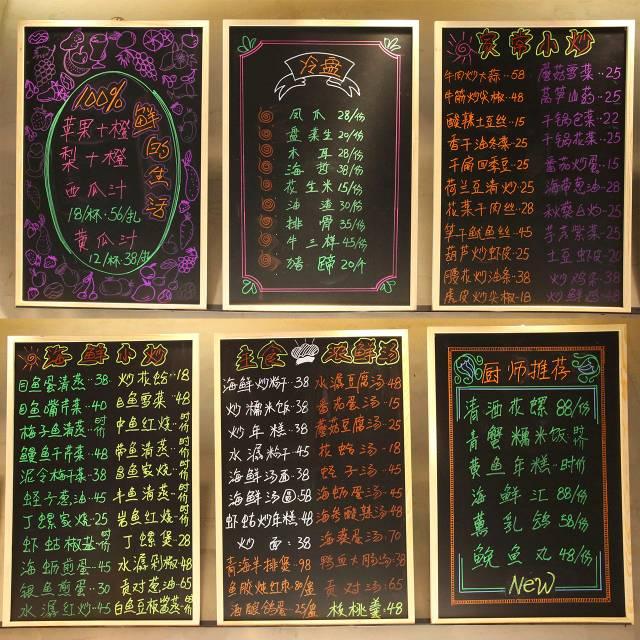 100%
鲜的生活
苹果+橙
梨+橙
西瓜汁
18/杯·56/扎
黄瓜汁
12/杯·38/扎
冷盘
凤爪 28/份
盘菜生 20/份
木耳 28/份
海哲 38/份
花生米 15/份
油渣 30/份
排骨 35/份
牛三样 45/份
猪蹄 20/个
家常小炒
牛肉炒大蒜··58
牛筋炒尖椒·48
酸辣土豆丝·15
香干油冬菜·25
千扁四季豆·25
荷兰豆清炒·25
花菜干肉丝·28
笋干鱿鱼丝·45
葫芦炒虾皮·25
腰花炒油条·38
虎皮炒尖椒·18
蘑菇雪菜··25
莴笋山药··25
干锅包菜··22
干锅花菜··25
番茄炒蛋··15
海带葱油··28
秋葵白灼··25
芋艿紫菜··25
土豆虾皮·20
炒鸡杂··38
炒鲜鱿··48
海鲜小炒
目鱼蛋清蒸··38
目鱼嘴芹菜··40
梅子鱼清蒸·时价
鳗鱼干芹菜·48
泥冷梅干菜·38
蛏子葱油·45
丁螺家烧·25
虾蛄椒盐·时价
海蛎煎蛋·45
银鱼煎蛋·30
水潺红炒·45
炒花蛤·18
目鱼雪菜·48
中鱼红烧·时价
带鱼清蒸·时价
昌鱼家烧·时价
牛鱼清蒸·时价
岩鱼红烧·时价
丁螺煲·28
水潺剁椒·48
贡对葱油·65
白鱼豆板酱蒸·时价
主食
海鲜炒粉·38
炒糯米饭·38
炒年糕··38
水潺粉干·45
海鲜汤面·38
海鲜汤圆·58
虾蛄炒年糕·48
炒面··38
青海羊排煲·98
鱼胶炖红枣·80/盅
海酸鸽蛋·25/盅
浓鲜汤
水潺豆腐汤·48
番茄蛋汤·15
蘑菇豆腐汤·25
花蛤汤·18
蛏子汤·45
海蛎蛋汤·45
海参酸辣汤·48
海葵蛋汤·70
鸭血大肠汤·38
贡对汤·65
核桃羹·48
厨师推荐
清酒花螺 88/份
青蟹糯米饭·时价
黄鱼年糕··时价
海鲜汇 88/份
薰乳鸽 58/份
鮸鱼丸 48/份
NeW